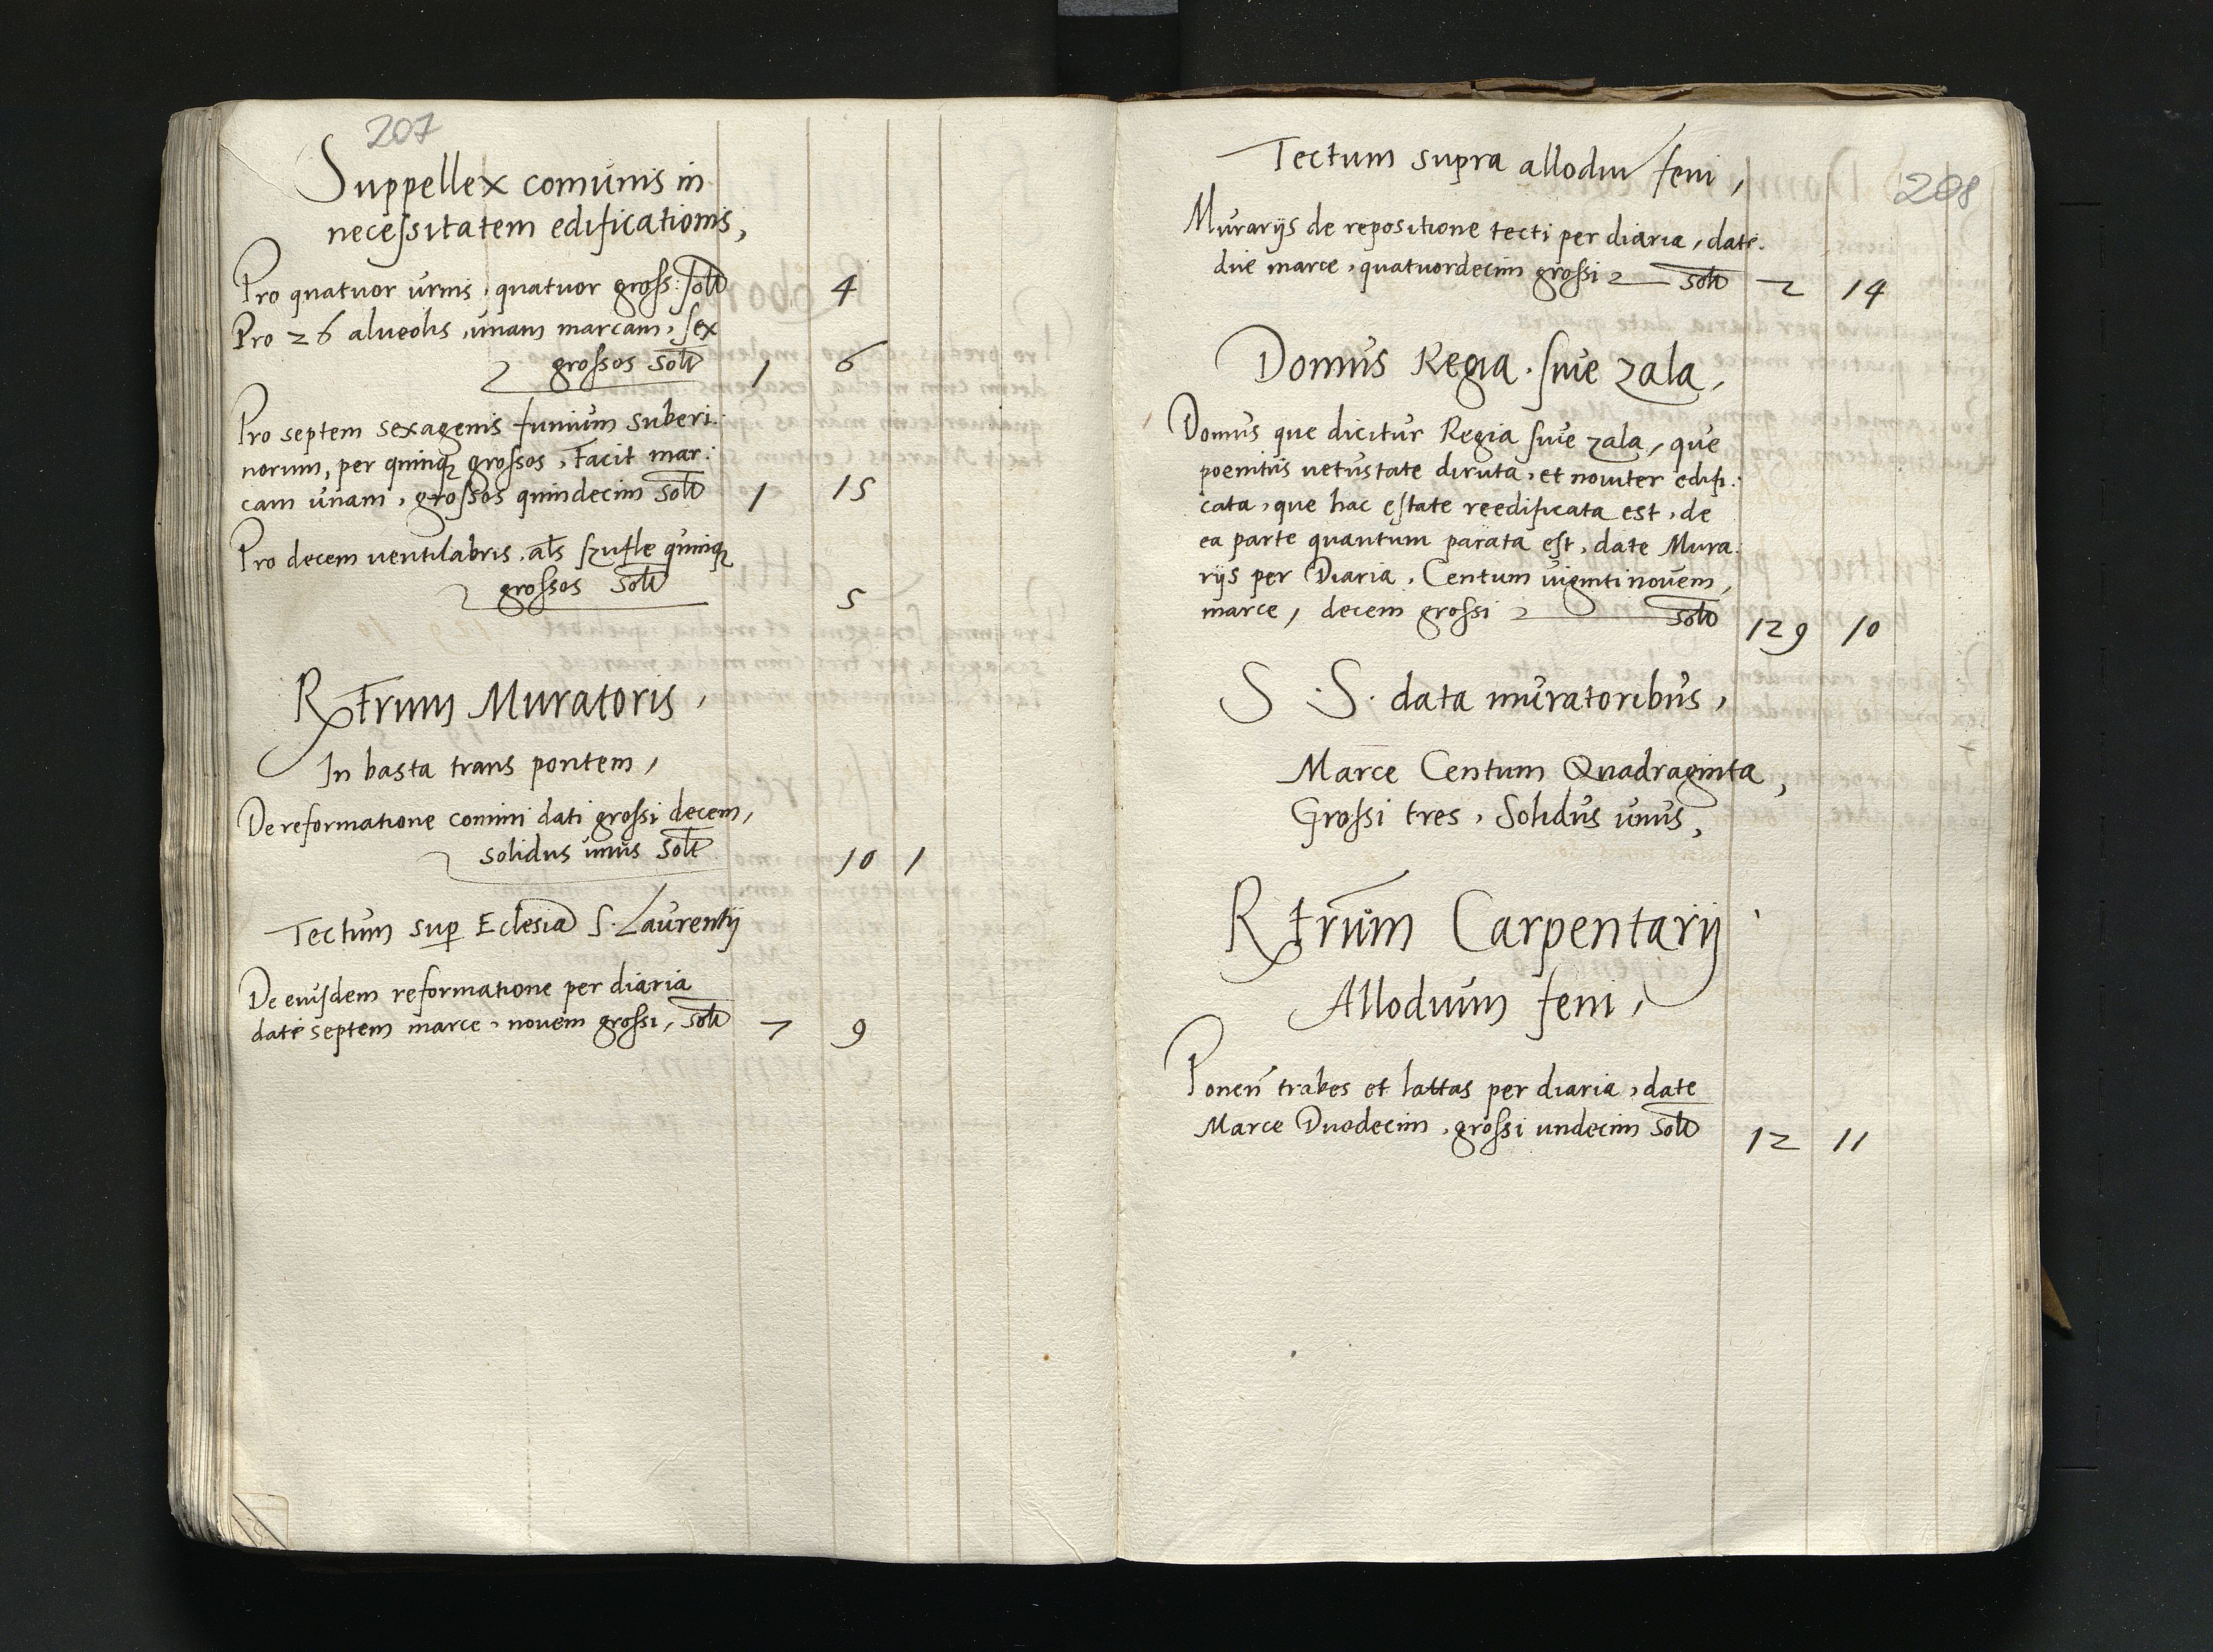 207
Suppellex comunis in
necessitatem edificationis,
Pro quatuor urnis, quatuor gross: solt 4
Pro 26 alveolis, unam marcam, sex
grossos solt 1 6
Pro septem sexagenis funium suberi:
norum, per quinq grossos, Facit mar:
cam unam, grossos quindecim solt 1 15
Pro decem ventilabris, als szufle quinq
grossos solt 5
Rtrum Muratoris,
In basta trans pontem,
De reformatione comini dati grossi decem,
solidus unus solt 10 1
Tectum sup Eclesia S. Laurentij
De eiusdem reformatione per diaria
date septem marce, novem grossi, solt 7 9
208
Tectum supra allodiu feni,
Murarijs de repositione tecti per diaria, date.
due marce, quatuordecim grossi solt 2 14
Domus Regia. sive zala,
Domus que dicitur Regia sive zala, que
poenitus vetustate diruta, et noviter edifi:
cata, que hac estate reedificata est, de
ea parte quantum parata est, date Mura:
rijs per Diaria, Centum viginti novem,
marce, decem grossi solt 129 10
S. S. data muratoribus,
Marce Centum Quadraginta,
Grossi tres, Solidus unus,
Rtrum Carpentarij
Allodium feni,
Ponen trabes et lattas per diaria, date
Marce Duodecim, grossi undecim solt 12 11